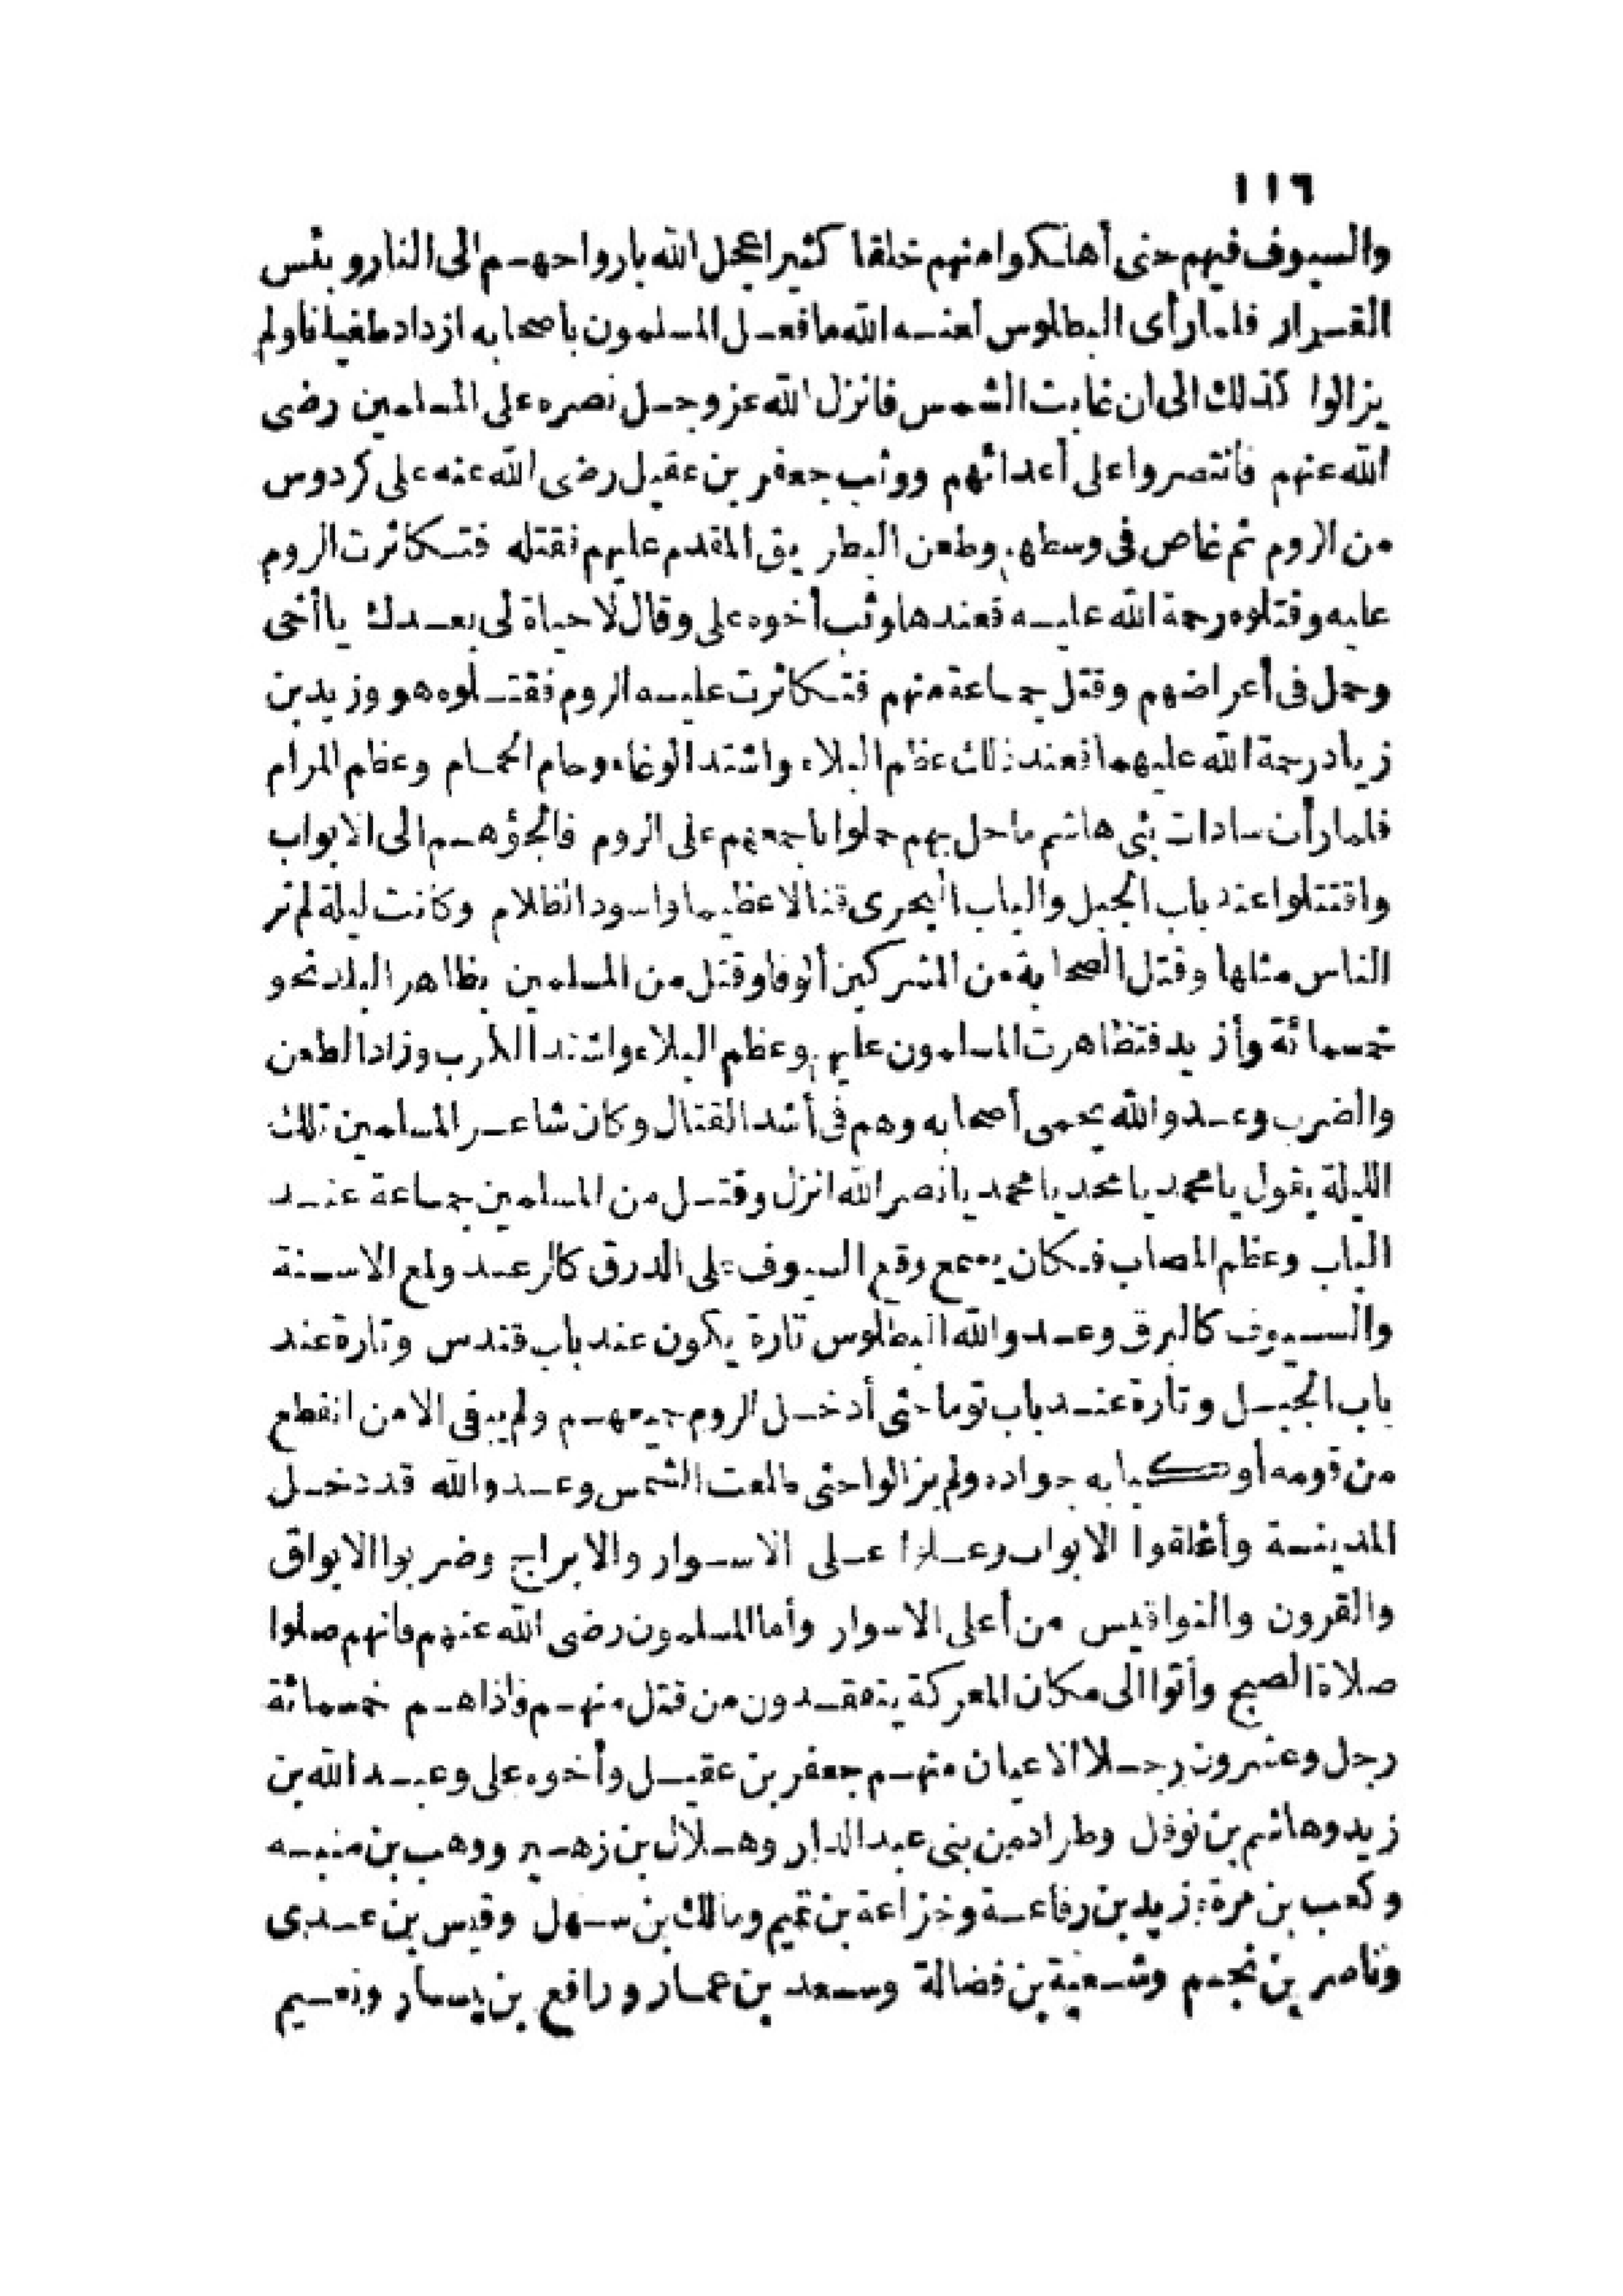 ١١٦
والسيوف فيهم حتى أهلكوا منهم خلقا كثيرا عجل الله بارواحهم الى النار وبئس
القرار فلما رأى البطلوس لعنه الله ما فعل المسلمون بأصحابه ازداد طغيانا ولم
يزالوا كذلك الى ان غابت الشمس فانزل الله عز وجل نصره على المسلمين رضى
الله عنهم فانتصروا على أعدائهم ووثب جعفر بن عقيل رضى الله عنه على كردوس
من الروم ثم غاص فى وسطهم وطعن البطريق المقدم عليهم فقتله فتكاثرت الروم
عليه وقتلوه رحمة الله عليه فعندها وثب أخوه على وقال لا حياة لى بعدك يا أخى
وحمل فى أعراضهم وقتل جماعة منهم فتكاثرت عليه الروم فقتلوه هو وزيد بن
زياد رحمة الله عليهما فعند ذلك عظم البلاء واشتد الوغاء وحام الحمام وعظم المرام
فلما رأت سادات بنى هاشم ما حل بهم حملوا باجمعهم على الروم فالجؤهم الى الابواب
واقتتلوا عند باب الجبل والباب البحرى قتالا عظيما واسود الظلام وكانت ليلة لم تر
الناس مثلها وقتل الصحابة من المشركين ألوفا وقتل من المسلمين بظاهر البلد نحو
خمسمائة وأزيد فتظاهرت المسلمون عليهم وعظم البلاء واشتد الكرب وزاد الطعن
والضرب وعدو الله يحمى أصحابه وهم فى أشد القتال وكان شاعر المسلمين تلك
الليلة يقول يا محمد يا محمد يا محمد يا نصر الله انزل وقتل من المسلمين جماعة عند
الباب وعظم المصاب فكان يسمع وقع السيوف على الدرق كالرعد ولمع الاسنة
والسيوف كالبرق وعدو الله البطلوس تارة يكون عند باب قندس وتارة عند
باب الجبل وتارة عند باب توما حتى أدخل الروم جميعهم ولم يبقى الا من انقطع
من قومه أو كبا به جواده ولم يزالوا حتى طلعت الشمس وعدو الله قد دخل
المدينة وأغلقوا الابواب وعلوا على الاسوار والابراج وضربوا الابواق
والقرون والنواقيس من أعلى الاسوار وأما المسلمون رضى الله عنهم فانهم صلوا
صلاة الصبح وأتوا الى مكان المعركة يتفقدون من قتل منهم فاذا هم خمسمائة
رجل وعشرون رجلا الاعيان منهم جعفر بن عقيل وأخوه على وعبد الله بن
زيد وهاشم بن نوفل وطراد من بنى عبد الدار وهلال بن زهير ووهب بن منبه
وكعب بن مرة وزيد بن رفاعة وخزاعة بن تميم ومالك بن سهل وقيس بن عدى
وناصر بن نجم وشعبة بن فضالة وسعد بن عمار ورافع بن يسار ونعيم